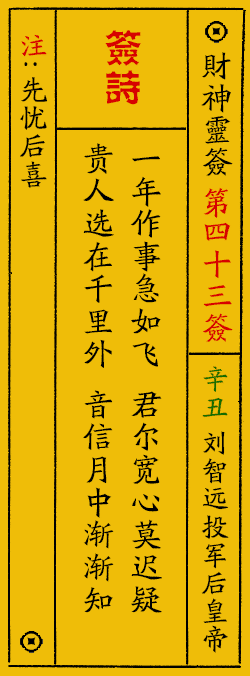 財神靈簽 第四十三簽
辛丑 刘智远投军后皇帝
簽詩
一年作事急如飞 君尔宽心莫迟疑
贵人选在千里外 音信月中渐渐知
注:先忧后喜